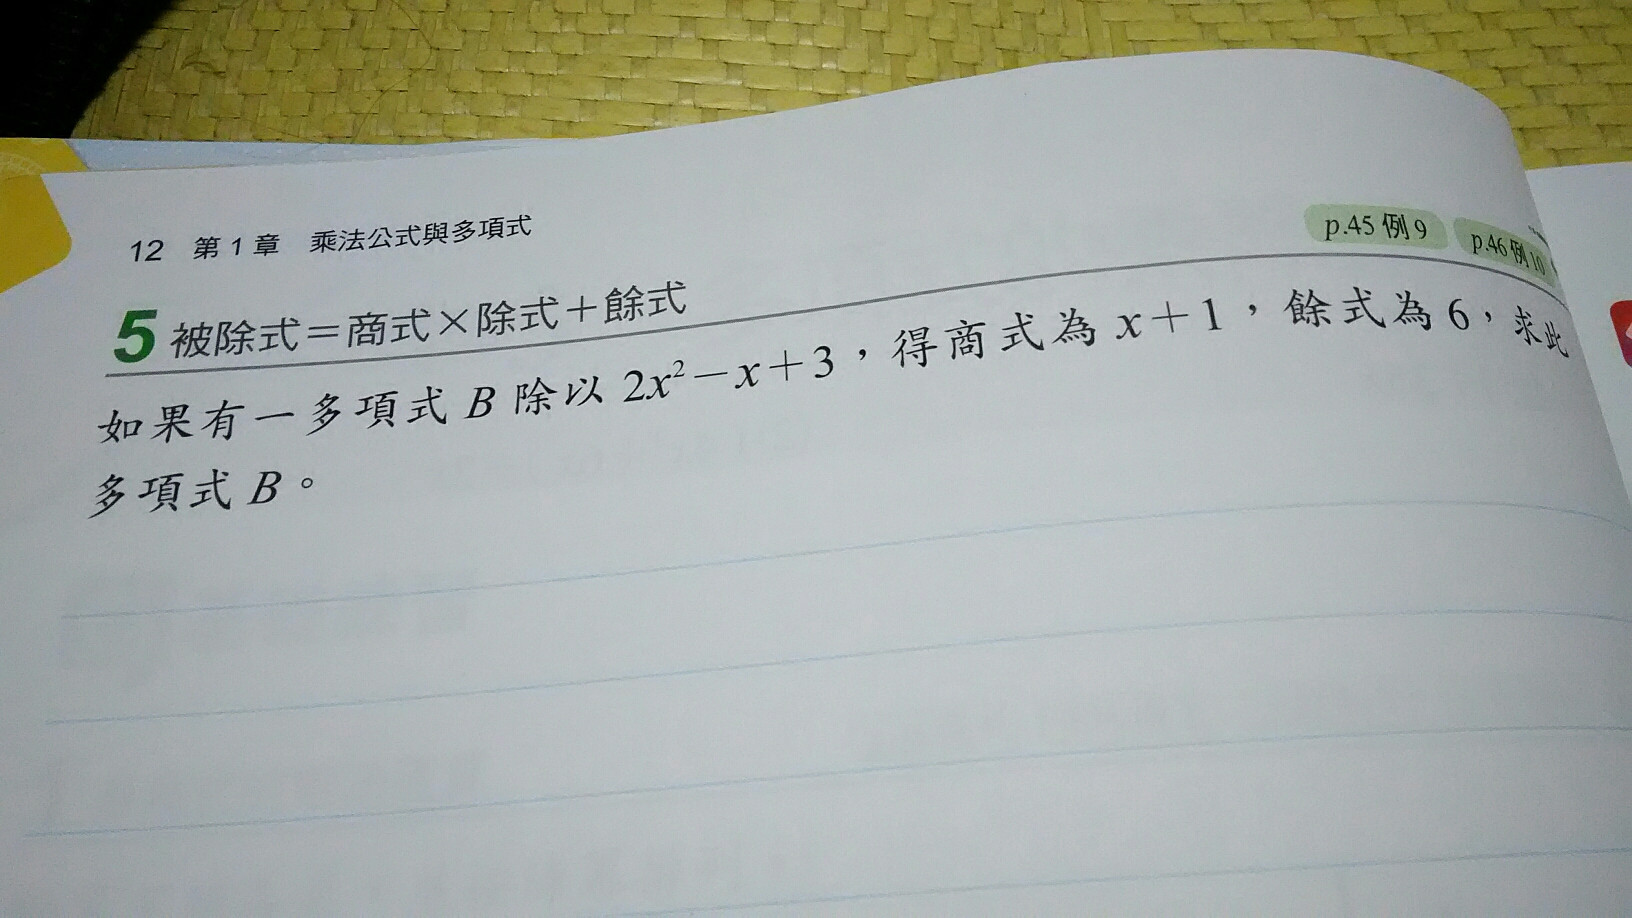 12 第1章 乘法公式與多項式
p.45 例9 p.46 例10
5 被除式=商式×除式+餘式
如果有一多項式 B 除以 2x²-x+3,得商式為 x+1,餘式為 6,求此
多項式 B。